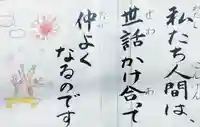 私たち人間は、
世話かけ合って
仲よく
なるのです